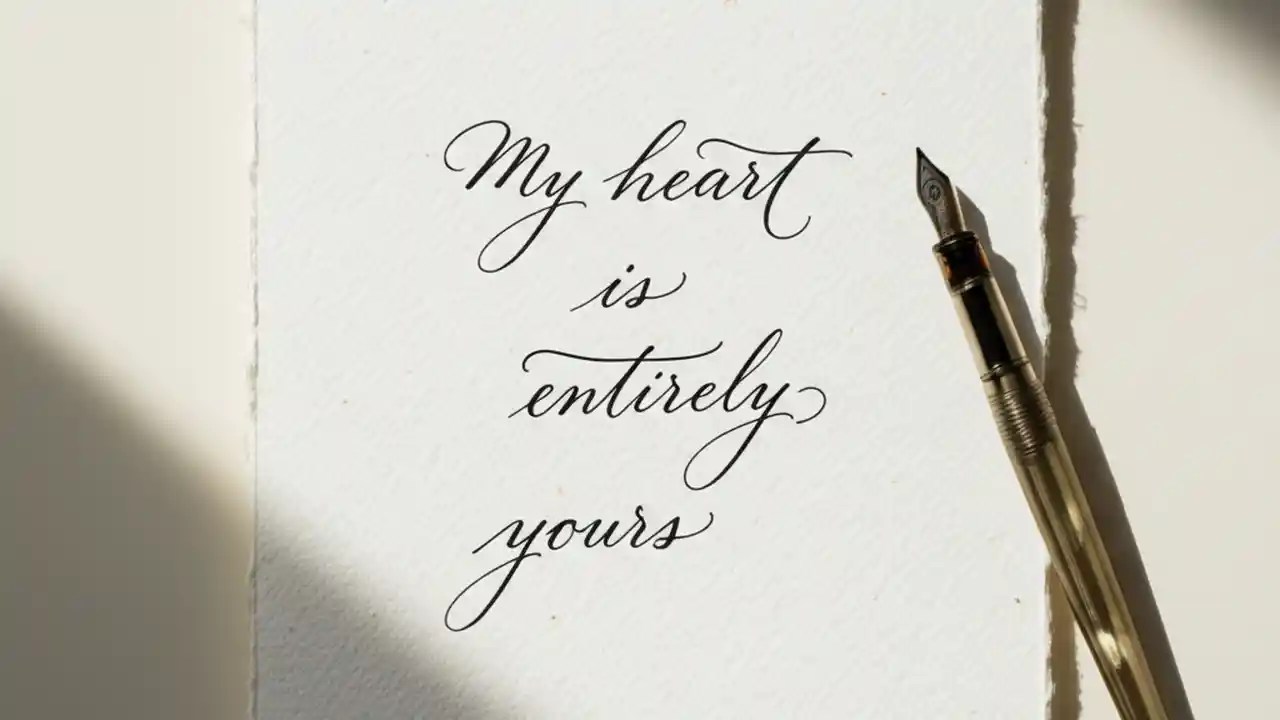 My heart
is
entirely
yours